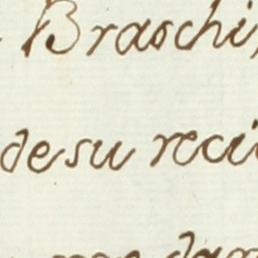 Braschi,
de su reci